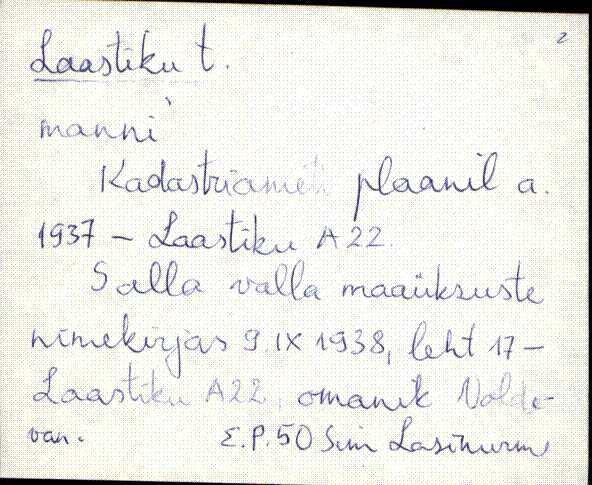 2
Laastiku t.
manni`
Kadastriameti plaanil a.
1937 – Laastiku A 22.
Salla valla maaüksuste
nimekirjas 9. IX 1938, leht 17 –
Laastiku A22, omanik Volde-
van. E.P. 50 Sim Lasinurme